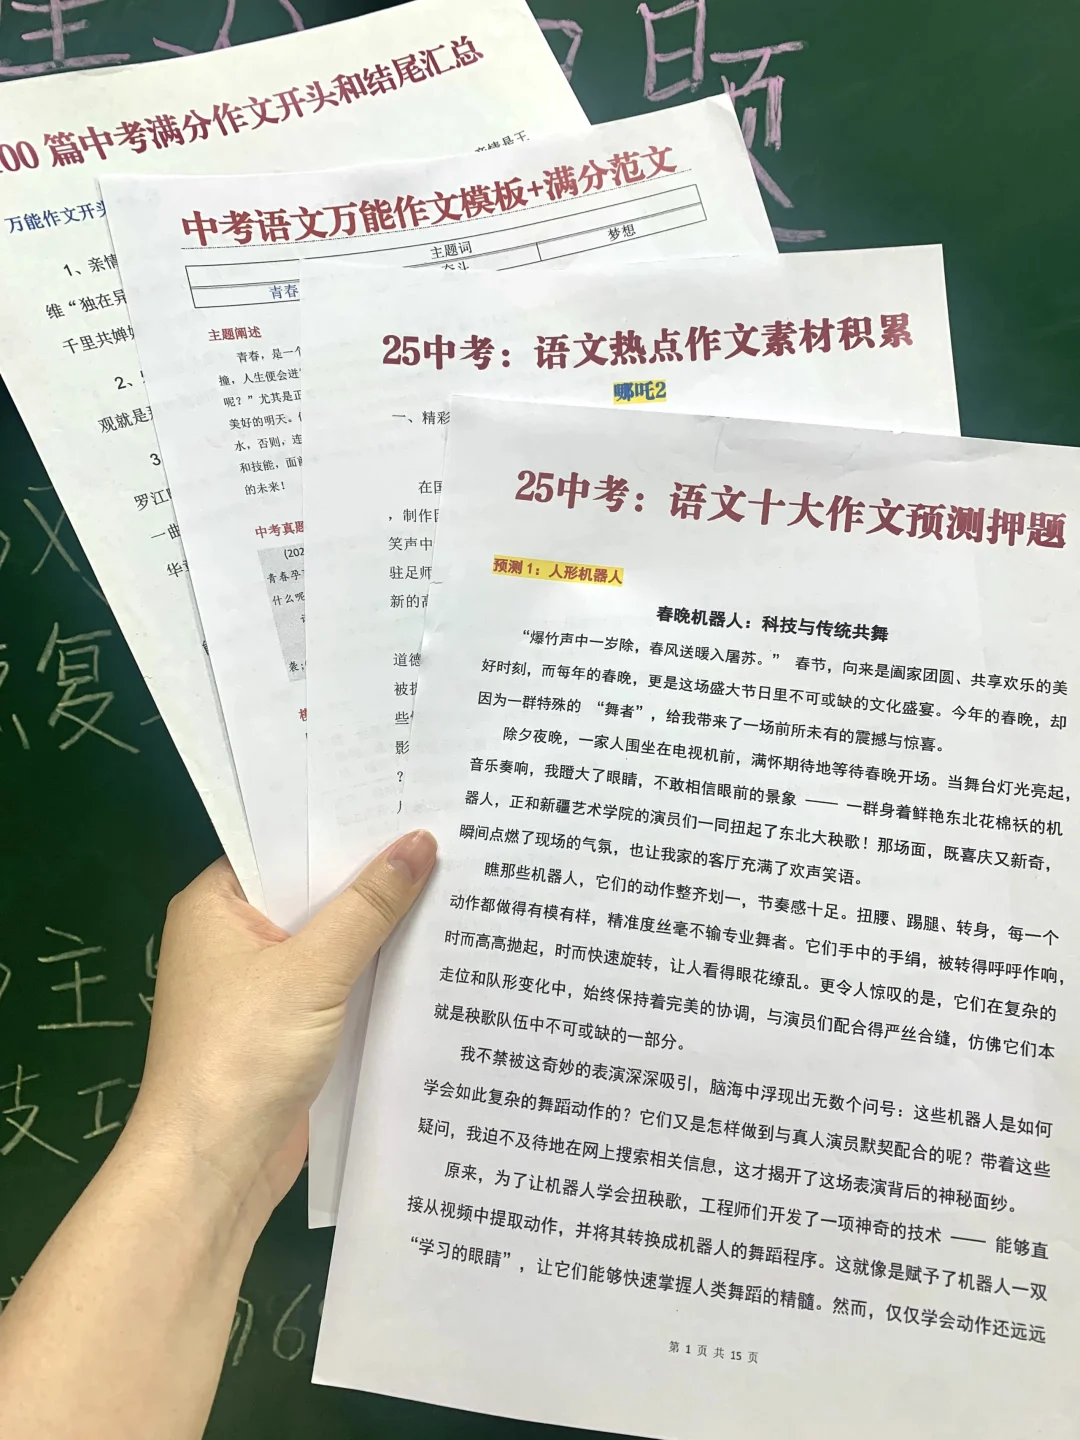 00 篇中考满分作文开头和结尾汇总
万能作文开头
1、亲情
维“独在异
千里共婵娟
2、
观就是
3
罗江
一曲
华
中考语文万能作文模板+满分范文
主题词
青春 奋斗 梦想
主题阐述
青春，是一个
撞，人生便会进
呢？”尤其是正
美好的明天。
水，否则，连
和技能，面前
的未来！
中考真题
(202
青春孕
什么呢
25中考：语文热点作文素材积累
哪吒2
一、精彩
在国
，制作团
笑声中
驻足师
新的高
道德
被扔
些
影
？
25中考：语文十大作文预测押题
预测1：人形机器人
春晚机器人：科技与传统共舞
“爆竹声中一岁除，春风送暖入屠苏。” 春节，向来是阖家团圆、共享欢乐的美
好时刻，而每年的春晚，更是这场盛大节日里不可或缺的文化盛宴。今年的春晚，却
因为一群特殊的 “舞者”，给我带来了一场前所未有的震撼与惊喜。
除夕夜晚，一家人围坐在电视机前，满怀期待地等待春晚开场。当舞台灯光亮起，
音乐奏响，我瞪大了眼睛，不敢相信眼前的景象 —— 一群身着鲜艳东北花棉袄的机
器人，正和新疆艺术学院的演员们一同扭起了东北大秧歌！那场面，既喜庆又新奇，
瞬间点燃了现场的气氛，也让我家的客厅充满了欢声笑语。
瞧那些机器人，它们的动作整齐划一，节奏感十足。扭腰、踢腿、转身，每一个
动作都做得有模有样，精准度丝毫不输专业舞者。它们手中的手绢，被转得呼呼作响，
时而高高抛起，时而快速旋转，让人看得眼花缭乱。更令人惊叹的是，它们在复杂的
走位和队形变化中，始终保持着完美的协调，与演员们配合得严丝合缝，仿佛它们本
就是秧歌队伍中不可或缺的一部分。
我不禁被这奇妙的表演深深吸引，脑海中浮现出无数个问号：这些机器人是如何
学会如此复杂的舞蹈动作的？它们又是怎样做到与真人演员默契配合的呢？带着这些
疑问，我迫不及待地在网上搜索相关信息，这才揭开了这场表演背后的神秘面纱。
原来，为了让机器人学会扭秧歌，工程师们开发了一项神奇的技术 —— 能够直
接从视频中提取动作，并将其转换成机器人的舞蹈程序。这就像是赋予了机器人一双
“学习的眼睛”，让它们能够快速掌握人类舞蹈的精髓。然而，仅仅学会动作还远远
第 1 页 共 15 页
复
主
技工